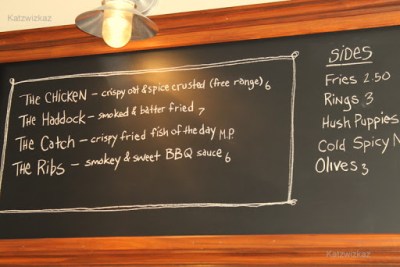 Katzwizkaz
THE CHICKEN - crispy oat & spice crusted (free range) 6
THE Haddock - smoked & batter fried 7
THE Catch - crispy fried fish of the day M.P.
THE Ribs - smokey & sweet BBQ sauce 6
SIDES
Fries 2.50
Rings 3
Hush Puppies
Cold Spicy N
Olives 3
Katzwizkaz